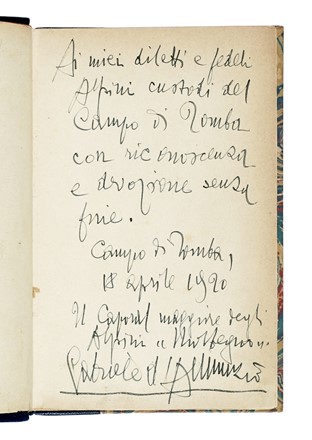 Ai miei diletti e fedeli
Alpini custodi del
Campo di Tomba
con riconoscenza
e devozione senza
fine.
Campo di Tomba,
18 aprile 1920
Il Caporal maggiore degli
Alpini "Morbegno".
Gabriele d'Annunzio